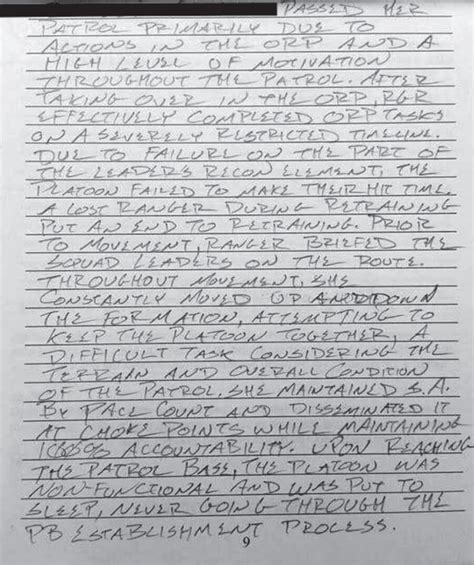 PASSED HER
PATROL PRIMARILY DUE TO
ACTIONS IN THE ORP AND A
HIGH LEVEL OF MOTIVATION
THROUGHOUT THE PATROL. AFTER
TAKING OVER IN THE ORP, RGR
EFFECTIVELY COMPLETED ORP TASKS
ON A SEVERELY RESTRICTED TIMELINE.
DUE TO FAILURE ON THE PART OF
THE LEADERS RECON ELEMENT, THE
PLATOON FAILED TO MAKE THEIR HIT TIME.
A LOST RANGER DURING RETRAINING
PUT AN END TO RETRAINING. PRIOR
TO MOVEMENT, RANGER BRIEFED THE
SQUAD LEADERS ON THE ROUTE.
THROUGHOUT MOVEMENT, SHE
CONSTANTLY MOVED UP AND DOWN
THE FORMATION, ATTEMPTING TO
KEEP THE PLATOON TOGETHER, A
DIFFICULT TASK CONSIDERING THE
TERRAIN AND OVERALL CONDITION
OF THE PATROL. SHE MAINTAINED S.A.
BY PACE COUNT AND DISSEMINATED IT
AT CHOKE POINTS WHILE MAINTAINING
100% ACCOUNTABILITY. UPON REACHING
THE PATROL BASE, THE PLATOON WAS
NON-FUNCTIONAL AND WAS PUT TO
SLEEP, NEVER GOING THROUGH THE
PB ESTABLISHMENT PROCESS.
9